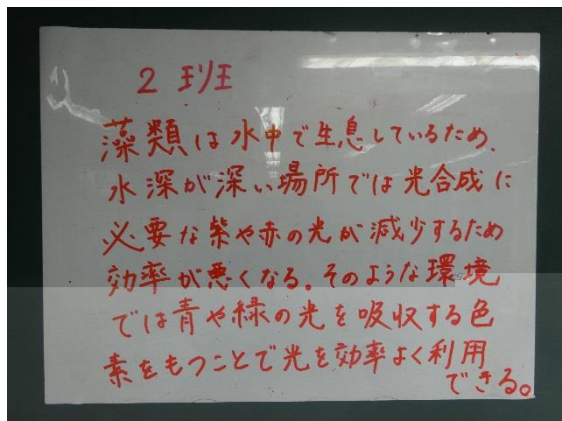 2 班
藻類は水中で生息しているため、
水深が深い場所では光合成に
必要な紫や赤の光が減少するため
効率が悪くなる。そのような環境
では青や緑の光を吸収する色
素をもつことで光を効率よく利用
できる。